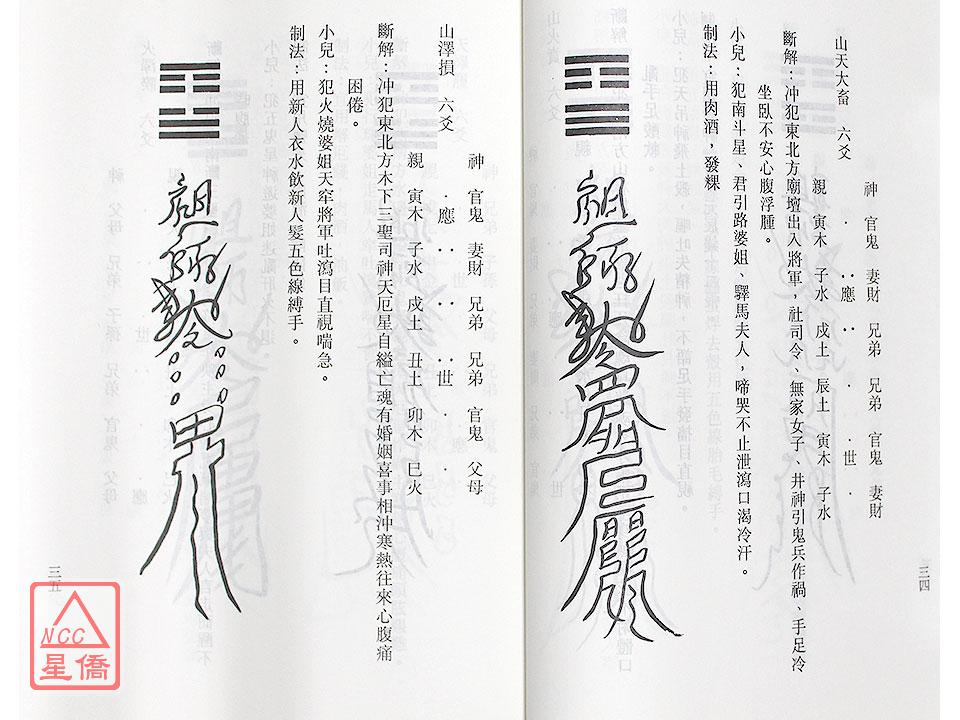 山天大畜　六爻
神　官鬼　妻財　兄弟　兄弟　官鬼　妻財
．　‥應　‥　．　．世　．
親　寅木　子水　戍土　辰土　寅木　子水
斷解：冲犯東北方廟壇出入將軍，社司令、無家女子、井神引鬼兵作禍、手足冷
坐臥不安心腹浮腫。
小兒：犯南斗星、君引路婆姐、驛馬夫人，啼哭不止泄瀉口渴冷汗。
制法：用肉酒，發粿
三四
山澤損　六爻
神　官鬼　妻財　兄弟　兄弟　官鬼　父母
．應　‥　‥　‥世　．　．
親　寅木　子水　戍土　丑土　卯木　巳火
斷解：冲犯東北方木下三聖司神天厄星自縊亡魂有婚姻喜事相沖寒熱往來心腹痛
困倦。
小兒：犯火燒婆姐天牢將軍吐瀉目直視喘急。
制法：用新人衣水飲新人髮五色線縛手。
三五
NCC
星僑